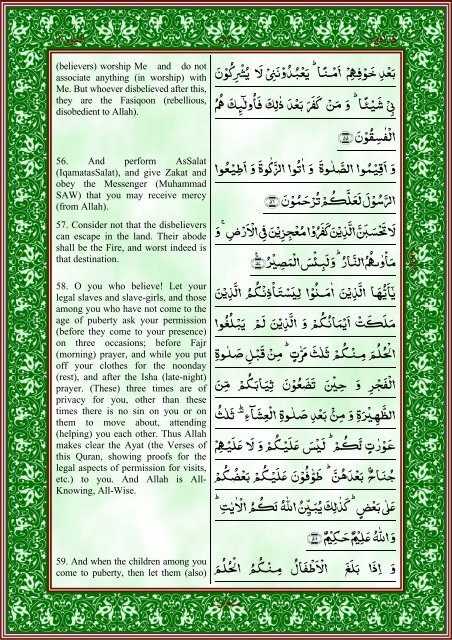 (believers) worship Me and do not
associate anything (in worship) with
Me. But whoever disbelieved after this,
they are the Fasiqoon (rebellious,
disobedient to Allah).
56. And perform AsSalat
(IqamatasSalat), and give Zakat and
obey the Messenger (Muhammad
SAW) that you may receive mercy
(from Allah).
57. Consider not that the disbelievers
can escape in the land. Their abode
shall be the Fire, and worst indeed is
that destination.
58. O you who believe! Let your
legal slaves and slave-girls, and those
among you who have not come to the
age of puberty ask your permission
(before they come to your presence)
on three occasions; before Fajr
(morning) prayer, and while you put
off your clothes for the noonday
(rest), and after the Isha (late-night)
prayer. (These) three times are of
privacy for you, other than these
times there is no sin on you or on
them to move about, attending
(helping) you each other. Thus Allah
makes clear the Ayat (the Verses of
this Quran, showing proofs for the
legal aspects of permission for visits,
etc.) to you. And Allah is All-
Knowing, All-Wise.
59. And when the children among you
come to puberty, then let them (also)
بَعْدِ خَوْفِهِمْ اَمْنًا ؕ يَعْبُدُوْنَنِيْ لَا يُشْرِكُوْنَ
بِيْ شَيْـًٔا ؕ وَ مَنْ كَفَرَ بَعْدَ ذٰلِكَ فَاُولٰٓئِكَ هُمُ
الْفٰسِقُوْنَ ۝۵۵
وَ اَقِيْمُوا الصَّلٰوةَ وَ اٰتُوا الزَّكٰوةَ وَ اَطِيْعُوا
الرَّسُوْلَ لَعَلَّكُمْ تُرْحَمُوْنَ ۝۵۶
لَا تَحْسَبَنَّ الَّذِيْنَ كَفَرُوْا مُعْجِزِيْنَ فِي الْاَرْضِ ۚ وَ
مَاْوٰىهُمُ النَّارُ ؕ وَ لَبِئْسَ الْمَصِيْرُ ۝۵۷
يٰۤاَيُّهَا الَّذِيْنَ اٰمَنُوْا لِيَسْتَاْذِنْكُمُ الَّذِيْنَ
مَلَكَتْ اَيْمَانُكُمْ وَ الَّذِيْنَ لَمْ يَبْلُغُوا
الْحُلُمَ مِنْكُمْ ثَلٰثَ مَرّٰتٍ ؕ مِنْ قَبْلِ صَلٰوةِ
الْفَجْرِ وَ حِيْنَ تَضَعُوْنَ ثِيَابَكُمْ مِّنَ
الظَّهِيْرَةِ وَ مِنْۢ بَعْدِ صَلٰوةِ الْعِشَآءِ ؕ ثَلٰثُ
عَوْرٰتٍ لَّكُمْ ؕ لَيْسَ عَلَيْكُمْ وَ لَا عَلَيْهِمْ
جُنَاحٌۢ بَعْدَهُنَّ ؕ طَوّٰفُوْنَ عَلَيْكُمْ بَعْضُكُمْ
عَلٰى بَعْضٍ ؕ كَذٰلِكَ يُبَيِّنُ اللّٰهُ لَكُمُ الْاٰيٰتِ ؕ
وَ اللّٰهُ عَلِيْمٌ حَكِيْمٌ ۝۵۸
وَ اِذَا بَلَغَ الْاَطْفَالُ مِنْكُمُ الْحُلُمَ